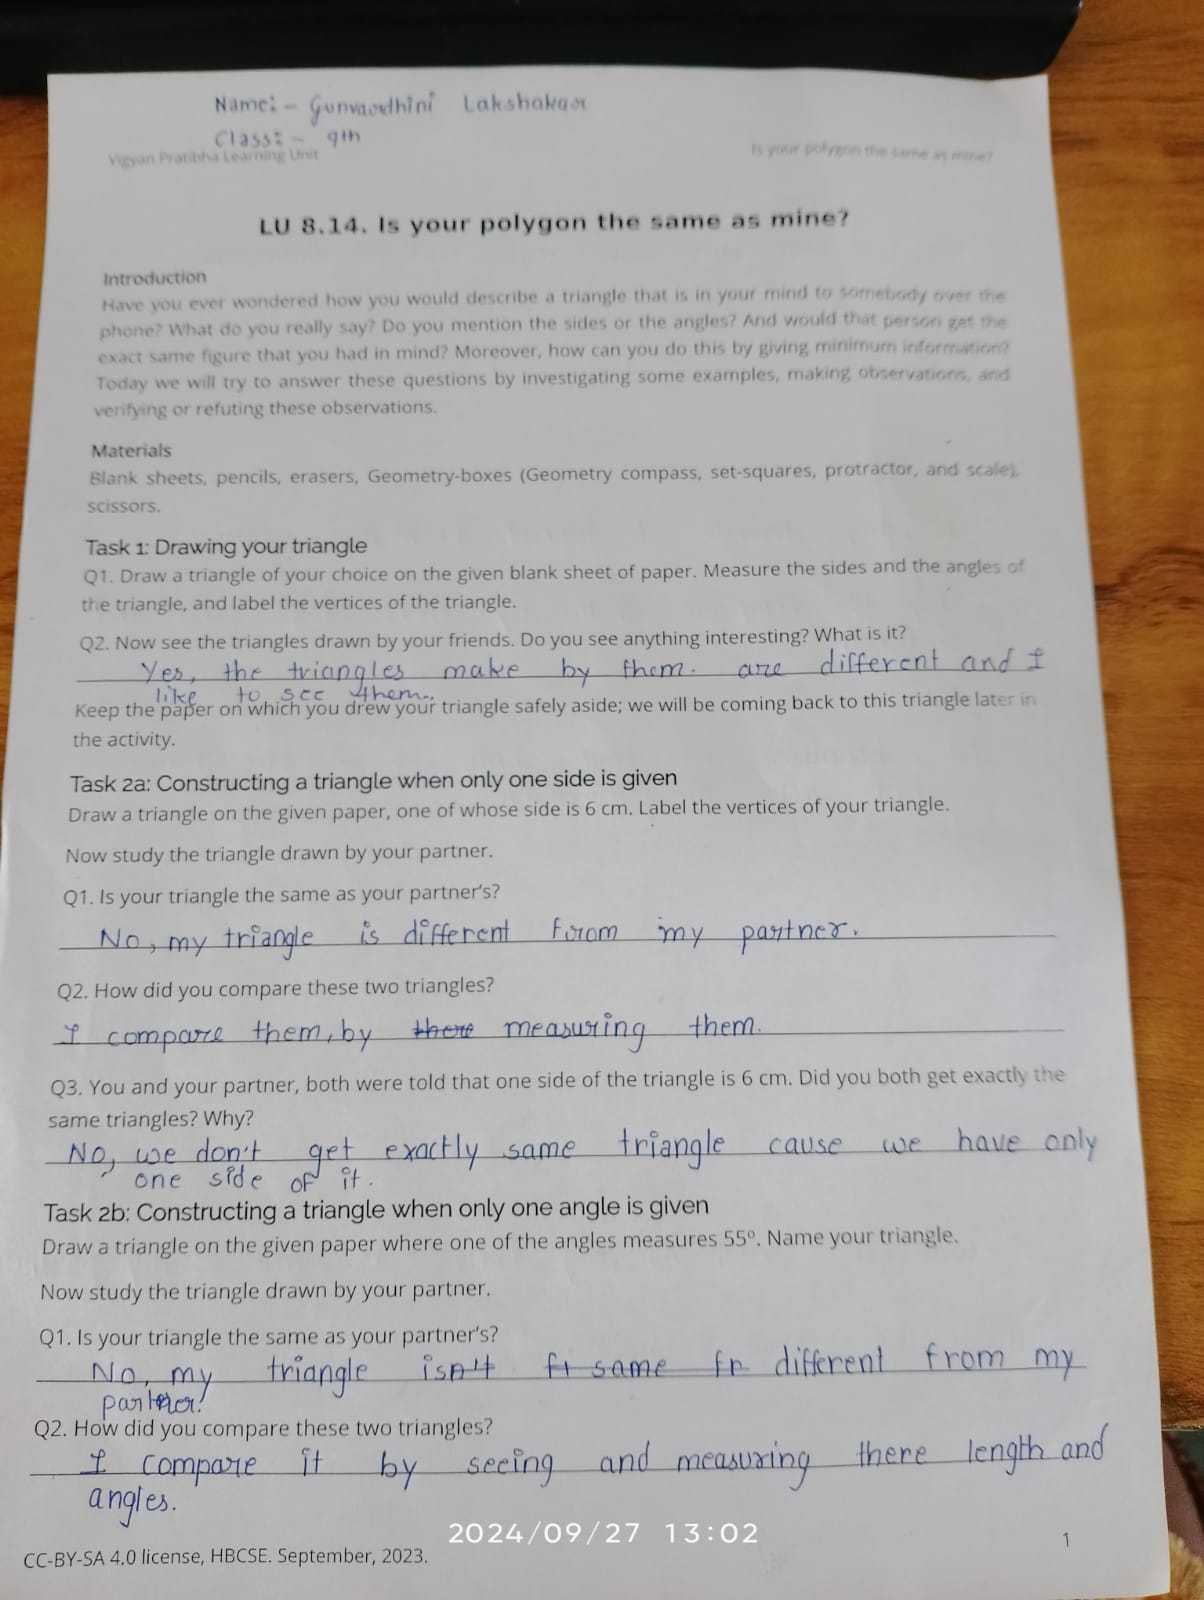 Name:- Gunvardhini Lakshakar
Class:- 9th
Vigyan Pratibha Learning Unit
Is your polygon the same as mine?
LU 8.14. Is your polygon the same as mine?
Introduction
Have you ever wondered how you would describe a triangle that is in your mind to somebody over the
phone? What do you really say? Do you mention the sides or the angles? And would that person get the
exact same figure that you had in mind? Moreover, how can you do this by giving minimum information?
Today we will try to answer these questions by investigating some examples, making observations, and
verifying or refuting these observations.
Materials
Blank sheets, pencils, erasers, Geometry-boxes (Geometry compass, set-squares, protractor, and scale),
scissors.
Task 1: Drawing your triangle
Q1. Draw a triangle of your choice on the given blank sheet of paper. Measure the sides and the angles of
the triangle, and label the vertices of the triangle.
Q2. Now see the triangles drawn by your friends. Do you see anything interesting? What is it?
Yes, the triangles make by them. are different and I
like to see them..
Keep the paper on which you drew your triangle safely aside; we will be coming back to this triangle later in
the activity.
Task 2a: Constructing a triangle when only one side is given
Draw a triangle on the given paper, one of whose side is 6 cm. Label the vertices of your triangle.
Now study the triangle drawn by your partner.
Q1. Is your triangle the same as your partner's?
No, my triangle is different from my partner.
Q2. How did you compare these two triangles?
I compare them, by there measuring them.
Q3. You and your partner, both were told that one side of the triangle is 6 cm. Did you both get exactly the
same triangles? Why?
No, we don't get exactly same triangle cause we have only
one side of it.
Task 2b: Constructing a triangle when only one angle is given
Draw a triangle on the given paper where one of the angles measures 55º. Name your triangle.
Now study the triangle drawn by your partner.
Q1. Is your triangle the same as your partner's?
No, my triangle isn't same fr different from my
partner.
Q2. How did you compare these two triangles?
I compare it by seeing and measuring there length and
angles.
2024/09/27 13:02
1
CC-BY-SA 4.0 license, HBCSE. September, 2023.